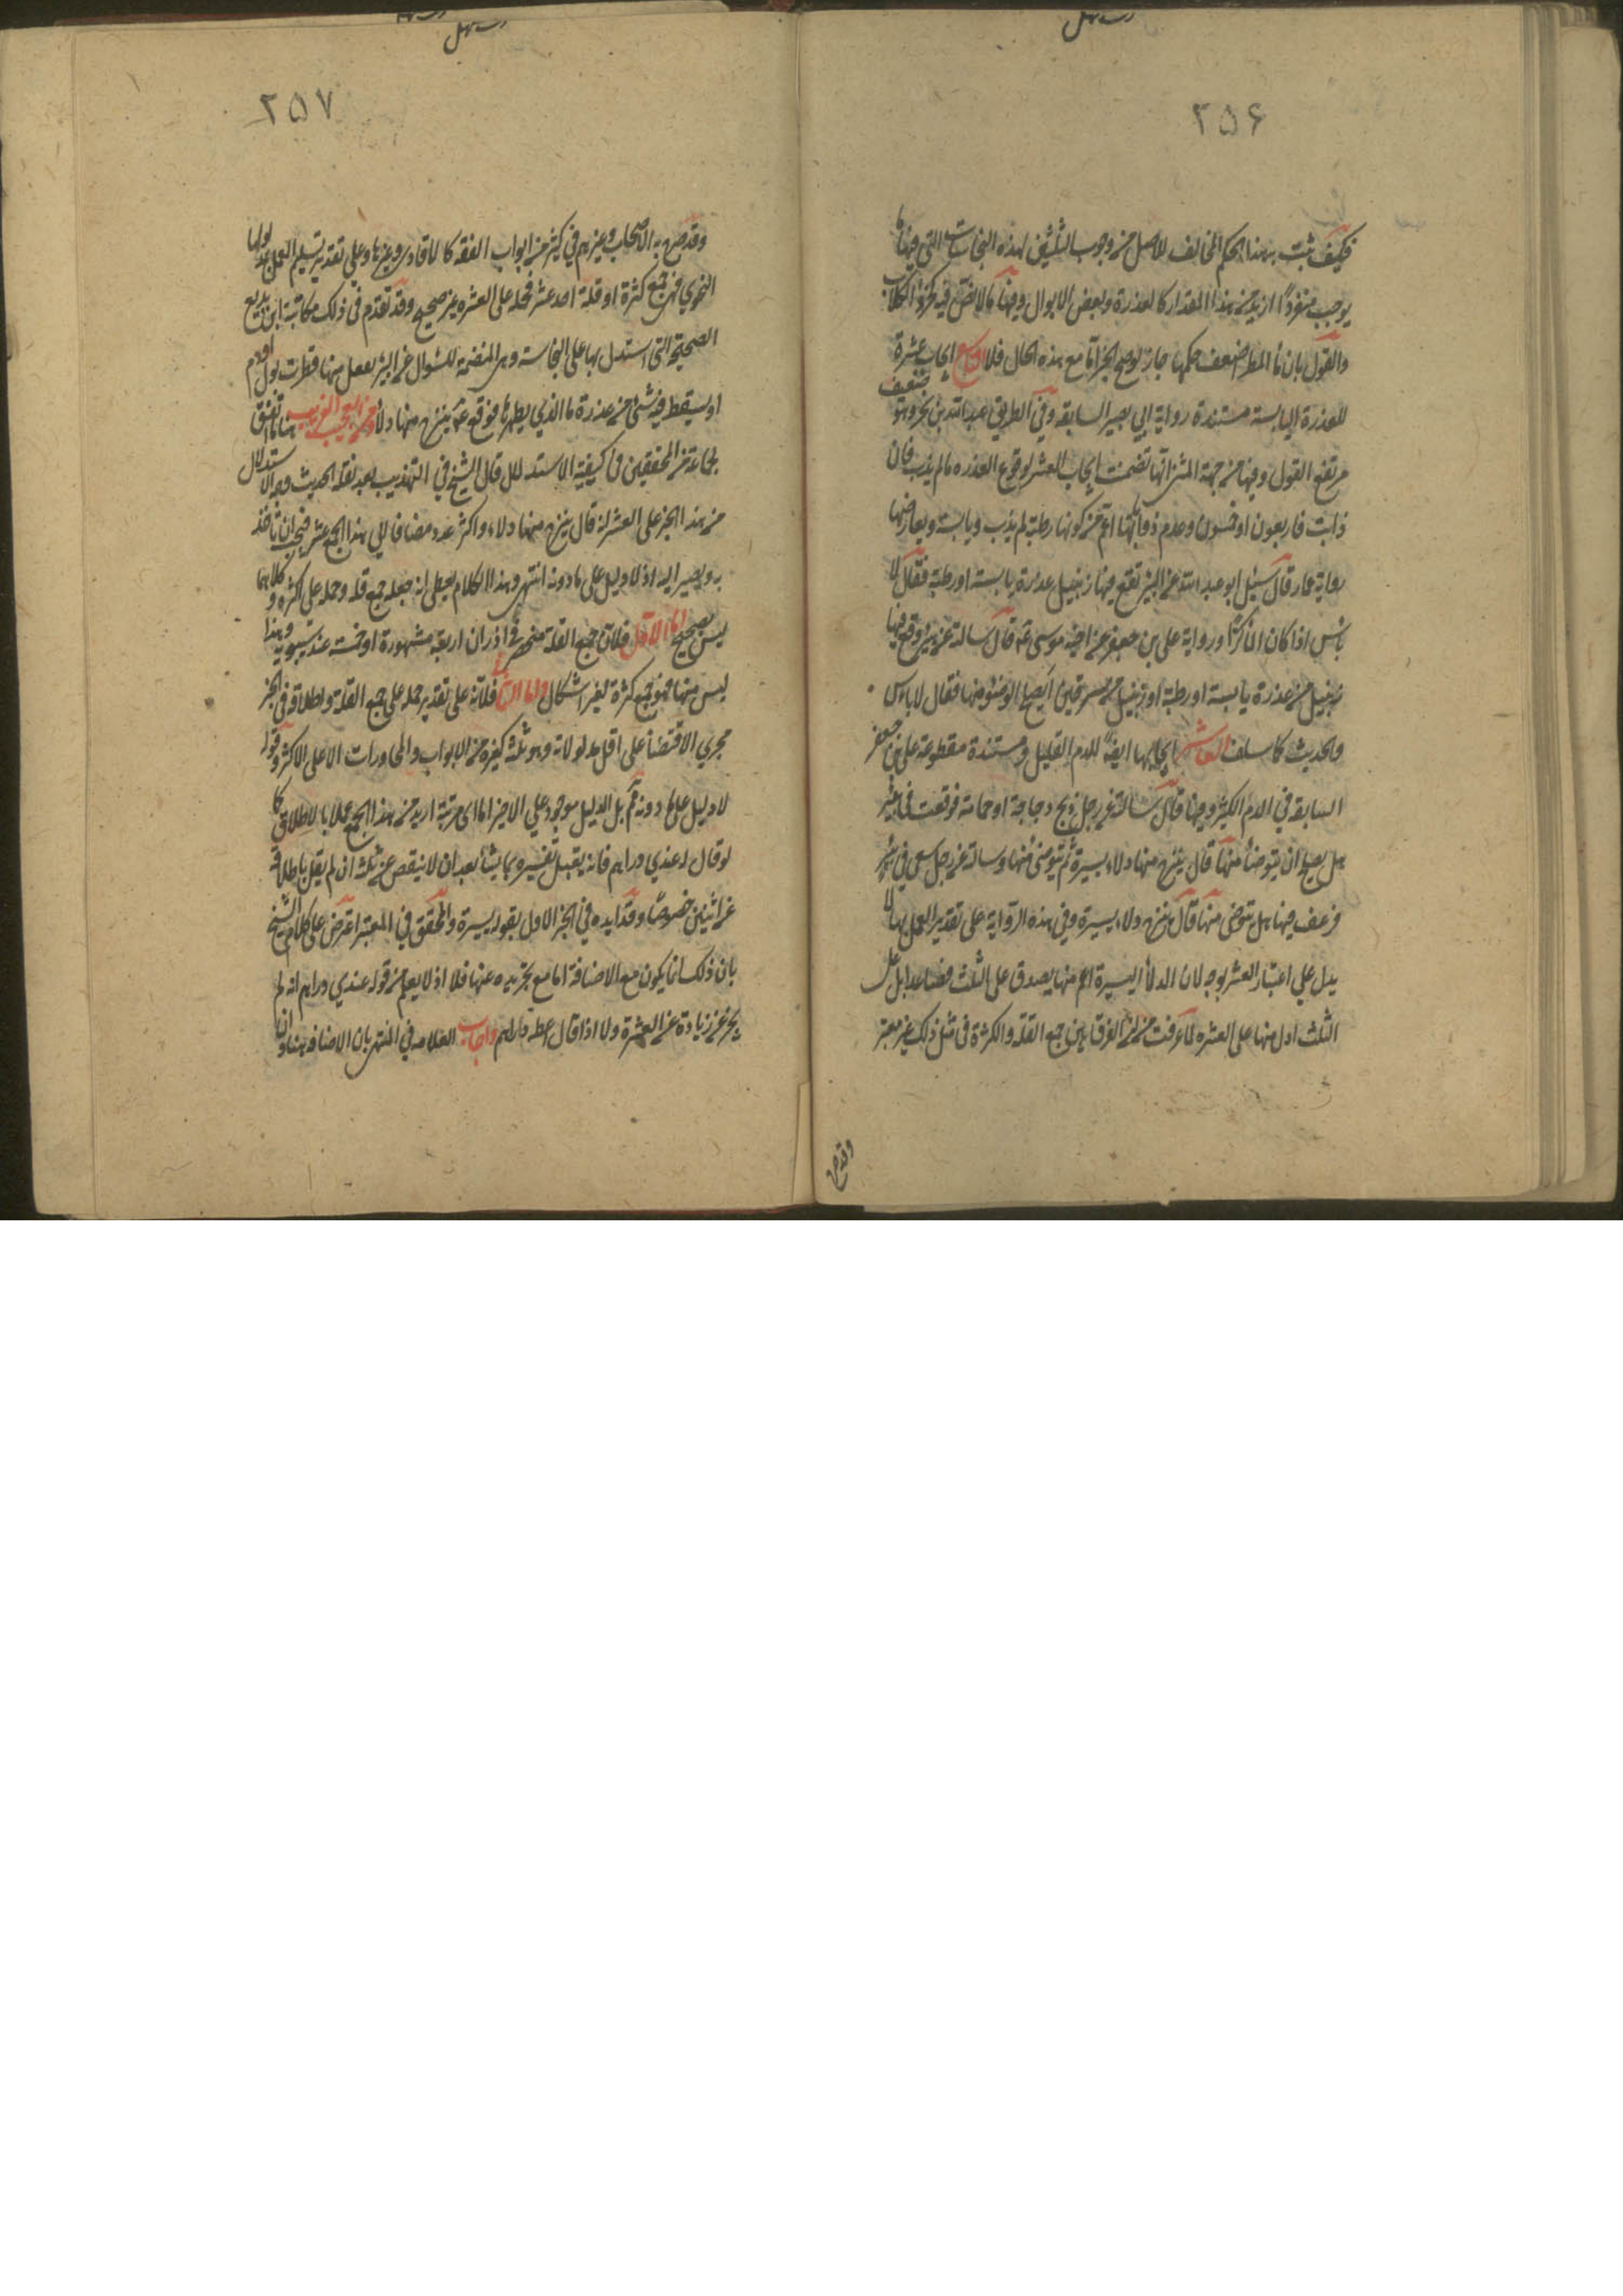 ٢٥۶
فكيف يثبت بهذا الحكم المخالف للاصل من وجوب الثلثين لهذه النجاسات التي فيها ما
يوجب منفردًا ازيد من هذا المقدار كالعذرة وبعض الابوال وفيها ما لا نص فيه كخرؤ الكلاب
والقول بان ماء المطر ضعف حكمها جاز لو صح الخبر اما مع هذه الحال فلا التاسع ايجاب عشرة
للعذرة اليابسة مستنده رواية ابي بصير السابقة وفي الطريق عبد الله بن بحر وهو ضعيف
مرتفع القول وفيها من جهة المتن انها تضمنت ايجاب العشر لوقوع العذره ما لم يذب فان
ذابت فاربعون او خمسون وعدم ذوبانها اعم من كونها رطبة لم يذب ويابسة ويعارضها
رواية عمار قال سئل ابو عبد الله عن البئر تقع فيها زنبيل عذرة يابسة او رطبة فقال لا
باس اذا كان الماء كرًا ورواية علي بن جعفر عن اخيه موسى ع قال سالته عن بئر وقع فيها
زنبيل من عذرة يابسة او رطبة او زنبيل من سرقين ايصلح الوضوء منها فقال لا باس
والحديث كما سلف العاشر ايجابها ايضًا للدم القليل ومستنده مقطوعة علي بن جعفر
السابقة في الدم الكثير وفيها قال سالته عن رجل ذبح دجاجة او حمامة فوقعت في بئر
هل يصلح ان يتوضأ منها قال ينزح منها دلاء يسيرة ثم يتوضئ منها وسالته عن رجل يستقي في بئر
فرعف فيها هل يتوضى منها قال ينزح دلاء يسيرة وفي هذه الرواية على تقدير العمل بها لا
يدل على اعتبار العشر بوجه لان الدلاء اليسيرة اعم منها يصدق على الثلث فصاعدا بل على
الثلث اول منها على العشره لما عرفت من ان الفرق بين جمع القلة والكثرة في مثل ذلك غير معتبر
وقد صرح
٢٥٧
وقد صرح به الاصحاب وغيرهم في كثير من ابواب الفقه كالاقارير وغيرها وعلى تقدير تسليم العمل بمدلولها
النحوي فهي جمع كثرة او قلة احد عشر فحمله على العشره غير صحيح وقد تقدم في ذلك مكاتبة ابن بزيع
الصحيحة التي استدل بها على النجاسة وهي المتضمنة للسؤال عن البئر يقطر فيها قطرات بول او دم
او يسقط فيه شئ من عذرة ما الذي يطهرها فوقع ع ينزح منها دلاء ومن العجب الغريب هنا ما اتفق
لجماعة من المحققين في كيفية الاستدلال قال الشيخ في التهذيب بعد نقله الحديث وجه الاستدلال
من هذا الخبر على العشر انه قال ينزح منها دلاء واكثر عدد مضاف الى هذا الجمع عشر فيجب ان ناخذ
به ونصير اليه اذ لا دليل على ما دونه انتهى وهذا الكلام يعطي انه جعله جمع قلة وحمله على اكثره وكلاهما
ليس بصحيح اما الاول فلان جمع القلة منحصر في اوزان اربعة مشهورة او خمسة عند سيبويه وهذا
ليس منها فهو جمع كثرة بغير اشكال واما الثاني فلانه على تقدير حمله على جمع القلة واطلاقه في الخبر
مجرى الاقتضاء على اقل مدلولاته وهو ثلثه كغيره من الابواب والمحاورات الا على الاكثر وقوله
لا دليل على ما دونه ثم بل الدليل موجود على الاخير اما اي مرتبة اريد من هذا الجمع عملا بالاطلاق كما
لو قال له عندي دراهم فانه يقبل تفسيره بما يشاء بعد ان لا ينقص عن ثلثه ان لم يقل باطلاقه
على اثنين خصوصًا وقد ايده في الخبر الاول بقوله يسيرة والمحقق في المعتبر اعترض على كلام الشيخ
بان ذلك انما يكون مع الاضافة اما مع تجريده عنها فلا اذ لا يعلم من قوله عندي دراهم انه لم
يخبر عن زيادة عن العشرة ولا اذا قال اعطه دراهم واجاب العلامه في المنتهى بان الاضافه هنا وان